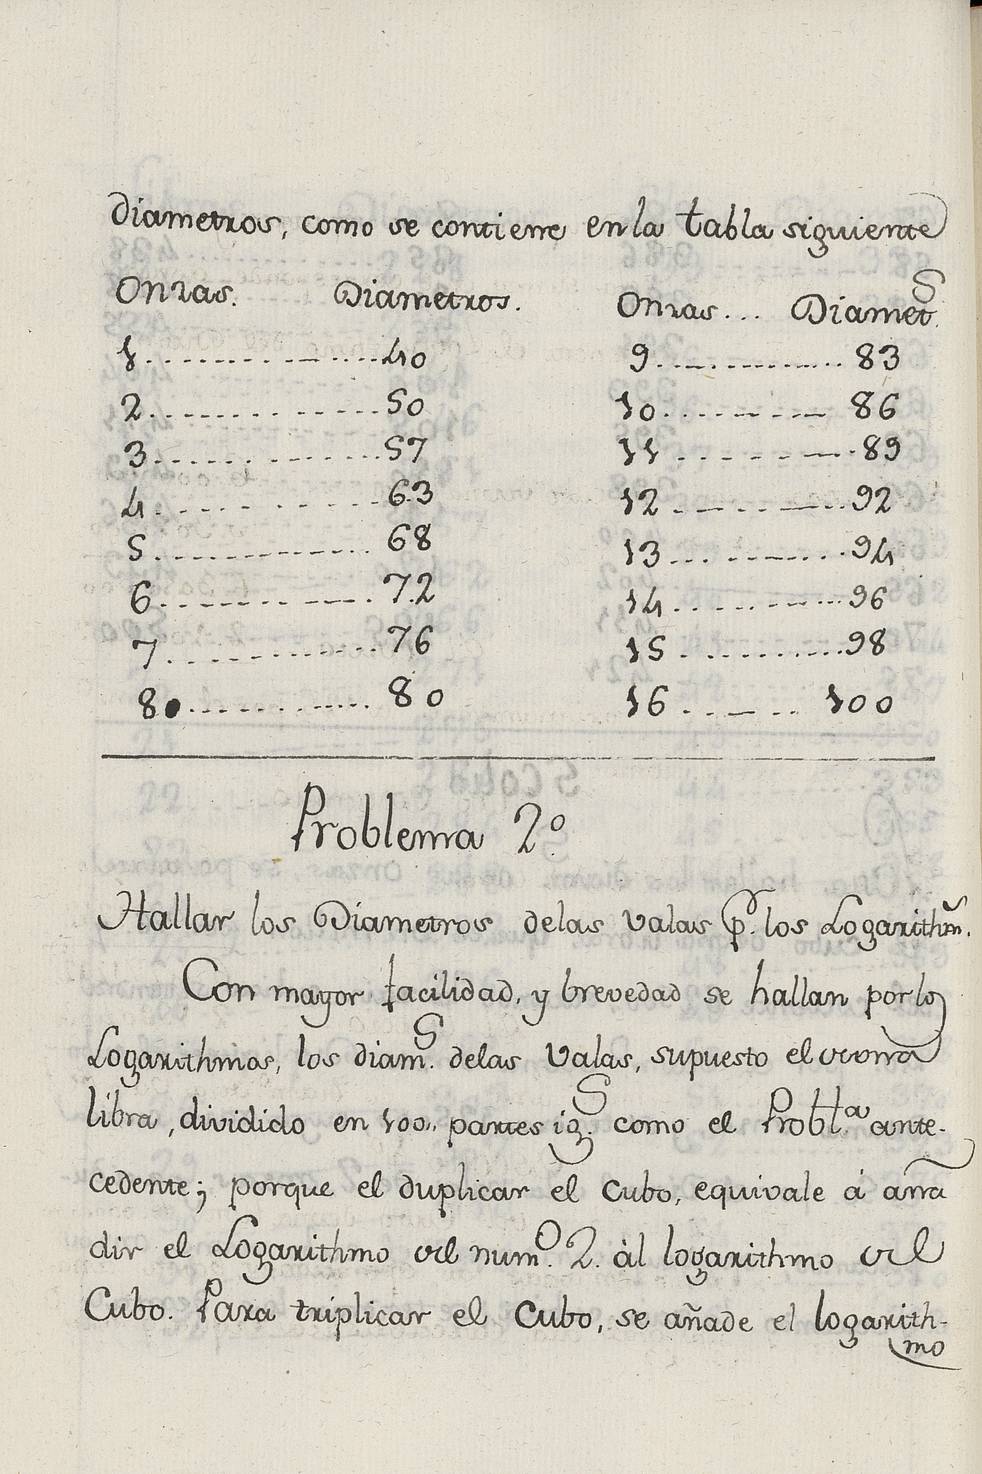 diametros, como se contiene en la tabla siguiente
Onzas. Diametros. Onzas... Diamet.s
1 ............ 40 9 ............ 83
2 ............ 50 10 ............ 86
3 ............ 57 11 ............ 89
4 ............ 63 12 ............ 92
5 ............ 68 13 ............ 94
6 ............ 72 14 ............ 96
7 ............ 76 15 ............ 98
8 ............ 80 16 ............ 100
Problema 2.º
Hallar los Diametros delas valas p.r los Logarithm.s
Con mayor facilidad, y brevedad se hallan por los
Logarithmos, los diam.s delas Valas, supuesto el de una
libra, dividido en 100,, partes ig.s como el Probl.a ante-
cedente; porque el duplicar el Cubo, equivale á aña
dir el Logarithmo del num.o 2. àl logarithmo del
Cubo. Para triplicar el Cubo, se añade el logarith-
mo